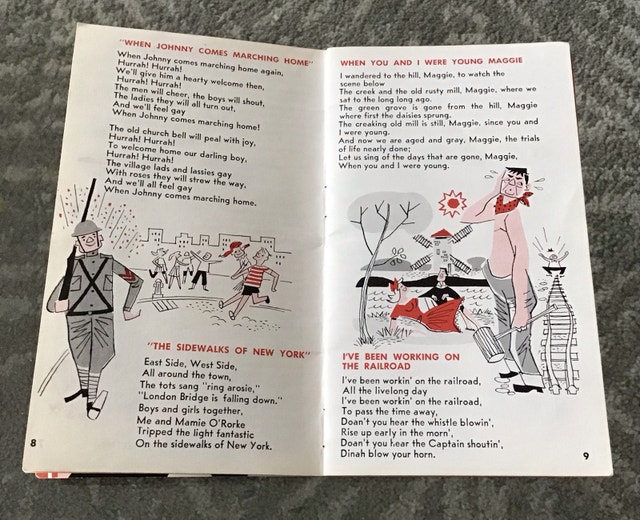 "WHEN JOHNNY COMES MARCHING HOME"
When Johnny comes marching home again,
Hurrah! Hurrah!
We'll give him a hearty welcome then,
Hurrah! Hurrah!
The men will cheer, the boys will shout,
The ladies they will all turn out,
And we'll feel gay
When Johnny comes marching home!
The old church bell will peal with joy,
Hurrah! Hurrah!
To welcome home our darling boy,
Hurrah! Hurrah!
The village lads and lassies gay
With roses they will strew the way,
And we'll all feel gay
When Johnny comes marching home.
"THE SIDEWALKS OF NEW YORK"
East Side, West Side,
All around the town,
The tots sang "ring arosie,"
"London Bridge is falling down."
Boys and girls together,
Me and Mamie O'Rorke
Tripped the light fantastic
On the sidewalks of New York.
8
WHEN YOU AND I WERE YOUNG MAGGIE
I wandered to the hill, Maggie, to watch the
scene below
The creek and the old rusty mill, Maggie, where we
sat to the long long ago.
The green grove is gone from the hill, Maggie
where first the daisies sprung.
The creaking old mill is still, Maggie, since you and
I were young.
And now we are aged and gray, Maggie, the trials
of life nearly done;
Let us sing of the days that are gone, Maggie,
When you and I were young.
I'VE BEEN WORKING ON
THE RAILROAD
I've been workin' on the railroad,
All the livelong day
I've been workin' on the railroad,
To pass the time away,
Doan't you hear the whistle blowin',
Rise up early in the morn',
Doan't you hear the Captain shoutin',
Dinah blow your horn.
9